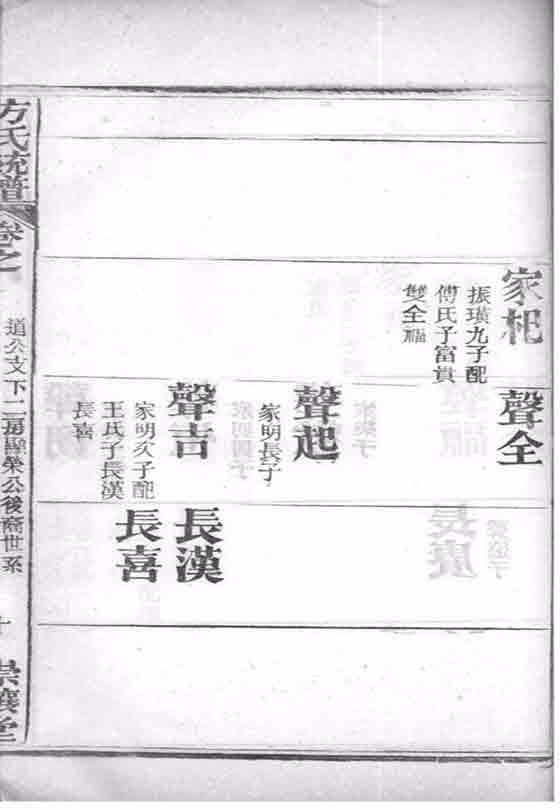 家相
振璜九子配
傅氏子富貴
雙全福
聲全
聲起
家明長子
聲吉
家明次子配
王氏子長漢
長喜
長漢
長喜
方氏統譜
卷之
道公支下二房聯榮公後裔世系
十
崇讓堂